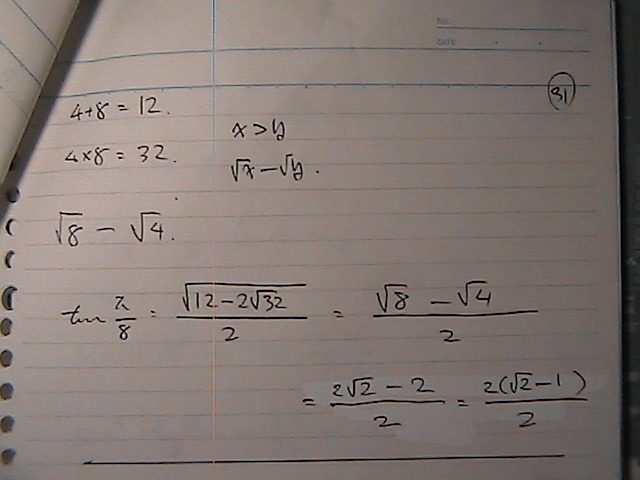 No.
DATE
31
4+8 = 12.
x > y
4×8 = 32.
√x − √y.
√8 − √4.
tan π/8 = √(12 − 2√32)/2 = (√8 − √4)/2
= (2√2 − 2)/2 = 2(√2 − 1)/2